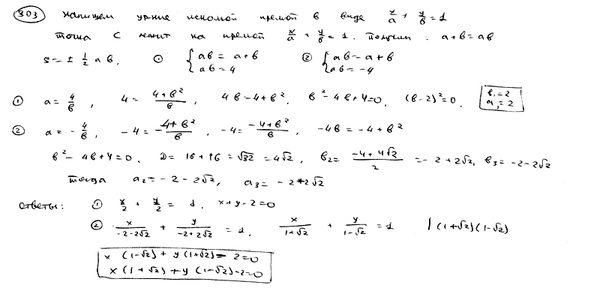 803 Напишем ур-ние искомой прямой в виде x/a + y/b = 1
точка C лежит на прямой x/a + y/b = 1. Получим: a+b = ab
S = ± 1/2 ab. ① { ab = a+b ab = 4 ② { ab = a+b ab = -4
① a = 4/b, 4 = (4+b²)/b, 4b = 4+b², b² - 4b + 4 = 0, (b-2)² = 0, b₁ = 2 a₁ = 2
② a = -4/b, -4 = (-4+b²)/b, -4 = (-4+b²)/b, -4b = -4+b²
b² - 4b + 4 = 0, D = 16 + 16 = √32 = 4√2, b₂ = (-4+4√2)/2 = -2+2√2, b₃ = -2-2√2
тогда a₂ = -2-2√2, a₃ = -2+2√2
ответы: ① x/2 + y/2 = 1, x+y-2=0
② x/(-2-2√2) + y/(-2+2√2) = 1, x/(1+√2) + y/(1-√2) = 1 | (1+√2)(1-√2)
x (1-√2) + y (1+√2) - 2 = 0
x (1+√2) + y (1-√2) - 2 = 0